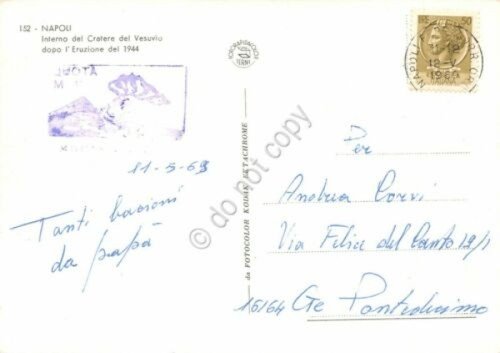 152 - NAPOLI
Interno del Cratere del Vesuvio
dopo l'Eruzione del 1944
11-5-69
Tanti bacioni
da papà
da FOTOCOLOR KODAK EKTACHROME
50
NAPOLI
12-V
1969
Per
Andrea Corvi
Via Felice del Canto 19/1
16164 Ge Pontedecimo
© do not copy